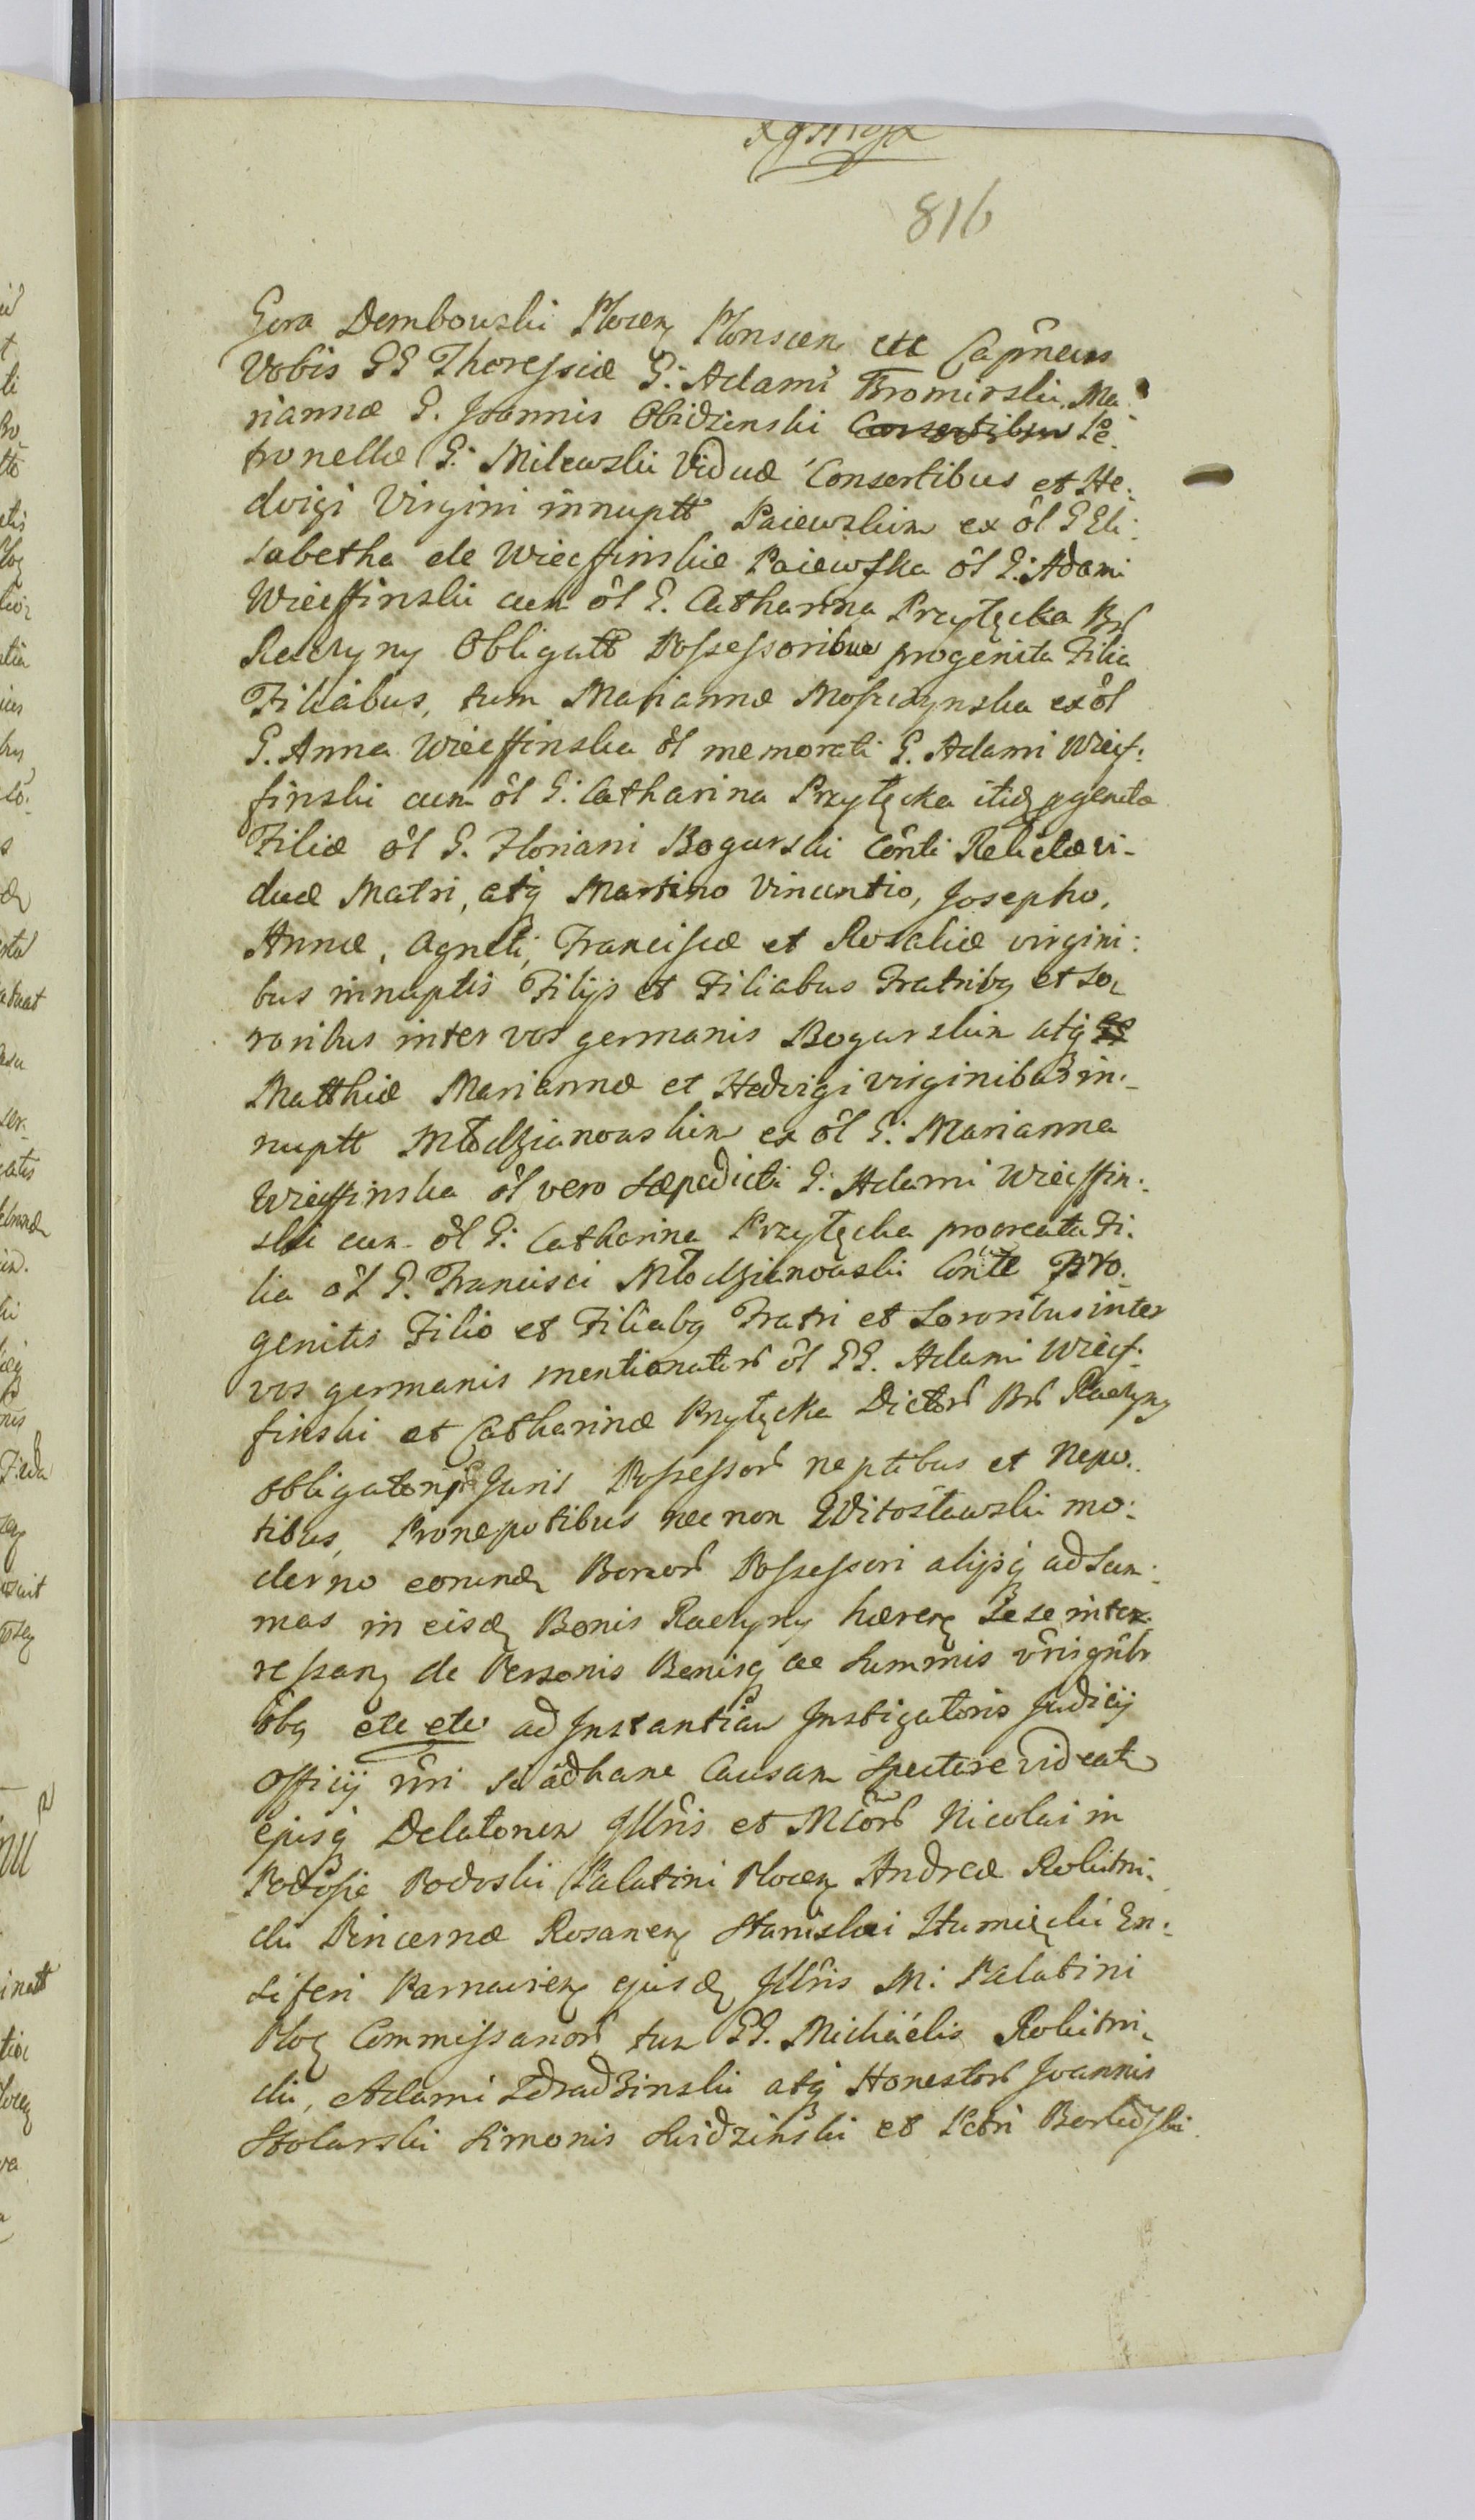 816
Gora Dembowski Plocen Plonscen etc Capneus
Vobis GG Theressiæ G: Adami Bromirski, Ma
riannæ G. Joannis Obidzinski Consortibus Pe
tronellæ G: Milewski Viduæ Consortibus et He:
dvigi Virgini innuptt Paiewskim ex ol G Eli:
sabetha de Wiecffinskie Paiewska ol G: Adami
Wieiffinski cum ol G. Catharina Przyłęcka Br
Raczyny Obligatt Possessoribus progenita Filia
Filiabus, tum Mariannæ Moszczynska ex ol
G. Anna Wieiffinska ol memorati G. Adami Wieif:
finski cum ol G: Catharina Przyłęcka itid pgenita
Filiæ ol G. Floriani Bogurski Conti Relictæ vi-
duæ Matri, atq Martino Vincentio, Josepho,
Annæ, Agneti, Franciscæ et Rosaliæ virgini:
bus innuptis Filijs et Filiabus Fratribq et So
roribus inter vos germanis Bogurskim atq
Matthiæ Mariannæ et Hedvigi virginibus in:
nuptt Młodzianowskim ex ol G: Marianna
Wieiffinska ol vero sæpedicti G: Adami Wieiffin:
ski cum ol G: Catharina Przyłęcka procreata Fi:
lia ol G. Francisci Młodzianowski Conte Pro:
genitis Filio et Filiabq Fratri et Sororibus inter
vos germanis mentionator ol GG. Adami Wieif:
finski et Catharinæ Przyłęcka Dictor Br Raczyny
obligatorij Juris Possessor neptibus et Nepo:
tibus, Pronepotibus nec non Witosławski mo:
derno eorund Bonor Possessori alijsq ad Sum:
mas in eisd Bonis Raczyny hæren sese inter
ressan de Personis Bonisq ac Summis vris gnlr
obq etc etc ad Instantiam Instigatoris Judicij
Officij nri se ad hanc Causam spectare videat
ejusq Delatorem Illris et Mcor Nicolai in
Podosie Podoski Palatini Plocen Andreæ Rokitni:
cki Pincernæ Rosanen Stanislai Humięcki En:
siferi Parnavien ejusd Illris M: Palatini
Ploc Commissarior, tum GG. Michaelis Rokitni
cki, Adami Zdradzinski atq Honestor Joannis
Stolarski Simonis Suidzinski et Petri